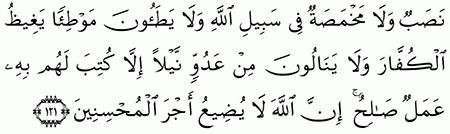 نَصَبٌ وَلَا مَخْمَصَةٌ فِى سَبِيلِ اللَّهِ وَلَا يَطَـُٔونَ مَوْطِئًا يَغِيظُ
الْكُفَّارَ وَلَا يَنَالُونَ مِنْ عَدُوٍّ نَّيْلًا إِلَّا كُتِبَ لَهُم بِهِۦ
عَمَلٌ صَـٰلِحٌ ۚ إِنَّ اللَّهَ لَا يُضِيعُ أَجْرَ الْمُحْسِنِينَ ﴿١٢١﴾